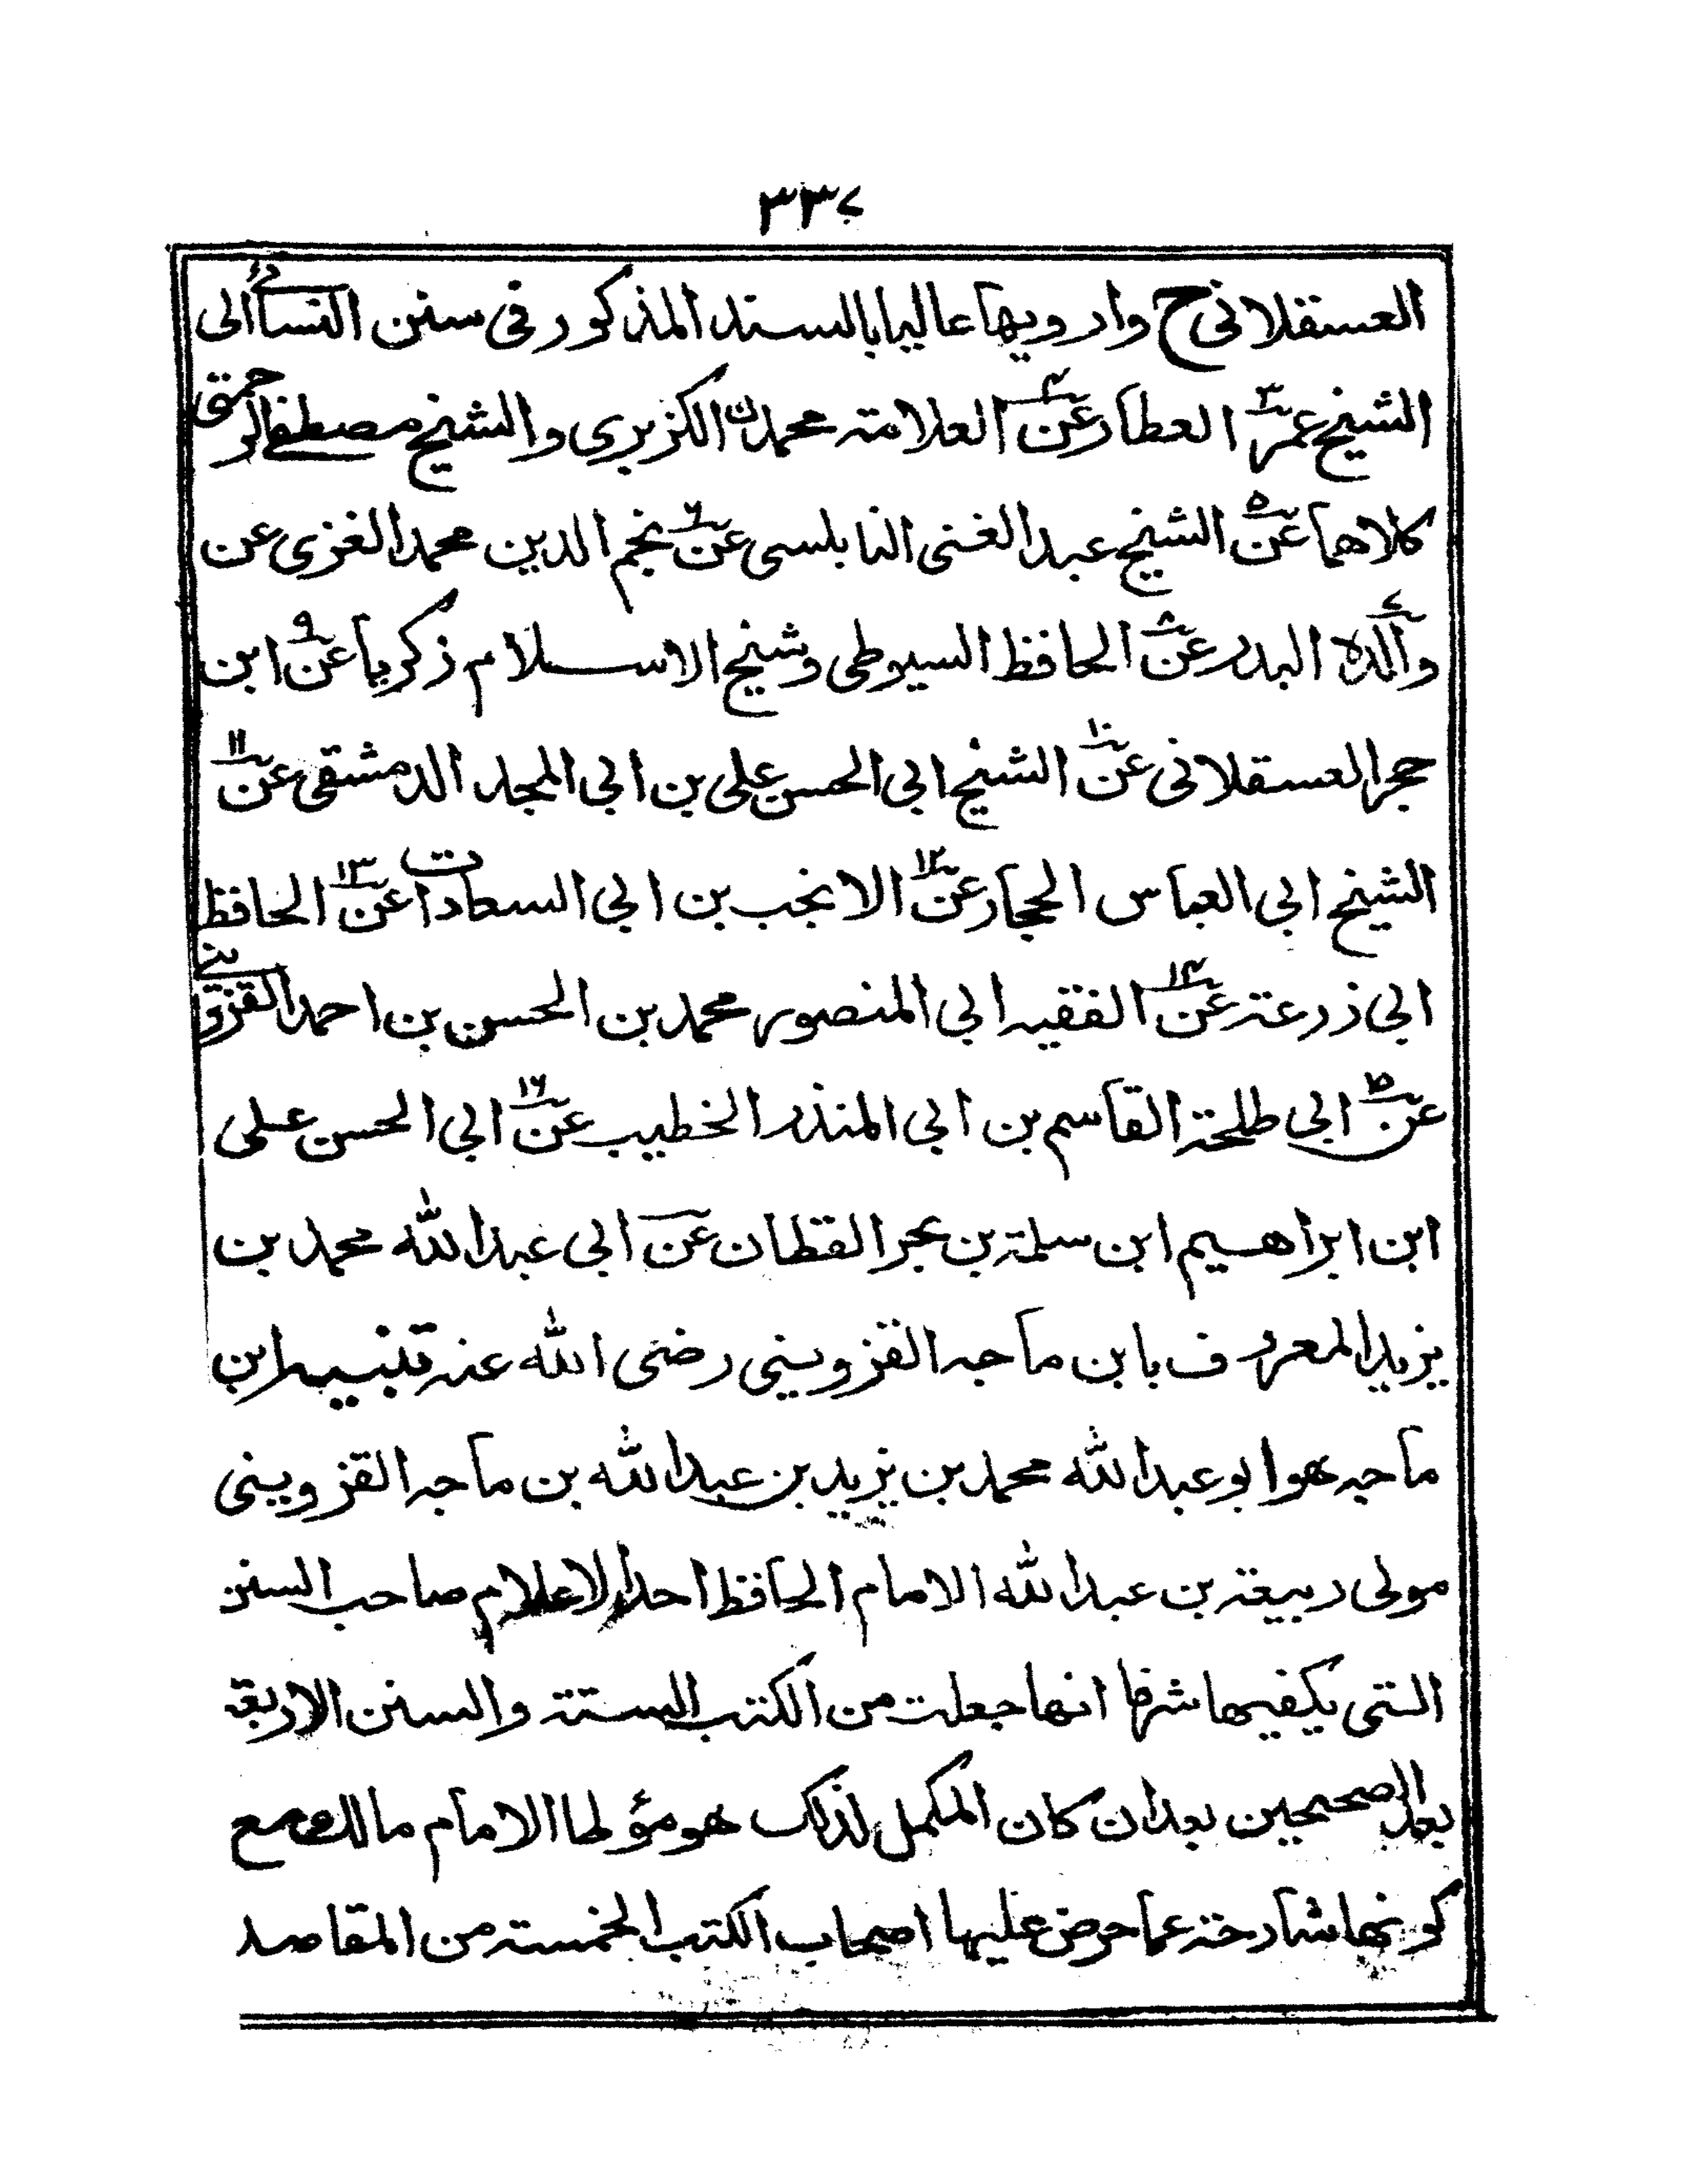 ٣٣٧
العسقلانى ح وارويها عاليا بالسند المذكور فى سنن النسائى الى
الشيخ عمر٣ العطار عن٤ العلامة محمدن الكزبرى والشيخ مصطفے الرحمتى
كلاهما عن٥ الشيخ عبد الغنى النابلسى عن٦ نجم الدين محمد الغزى عن
والده٧ البدر عن٨ الحافظ السيوطى وشيخ الاسلام زكريا عن٩ ابن
حجر العسقلانى عن١٠ الشيخ ابى الحسن على بن ابى المجد الدمشقى عن١١
الشيخ ابى العباس الحجار عن١٢ الانجب بن ابى السعادات عن١٣ الحافظ
ابى زرعة عن١٤ الفقيه ابى المنصور محمد بن الحسن بن احمد القزوينے
عن١٥ ابى طلحة القاسم بن ابى المنذر الخطيب عن١٦ ابى الحسن على
ابن ابراهيم ابن سلمة بن بحر القطان عن ابى عبد الله محمد بن
يزيد المعروف بابن ماجه القزوينى رضى الله عنه تنبيه ابن
ماجه هو ابو عبد الله محمد بن يزيد بن عبد الله بن ماجه القزوينى
مولى ربيعة بن عبد الله الامام الحافظ احد الاعلام صاحب السنن
التى يكفيها شرفا انها جعلت من الكتب الستة والسنن الاربعة
بعد الصحيحين بعد ان كان المكمل لذلك هو مؤلها الامام مالك مع
كونها شارحة عما حرض عليها اصحاب الكتب الخمسة من المقاصد